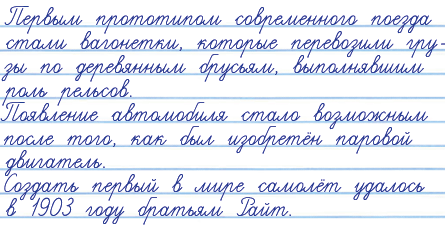 Первым прототипом современного поезда
стали вагонетки, которые перевозили гру-
зы по деревянным брусьям, выполнявшим
роль рельсов.
Появление автомобиля стало возможным
после того, как был изобретён паровой
двигатель.
Создать первый в мире самолёт удалось
в 1903 году братьям Райт.